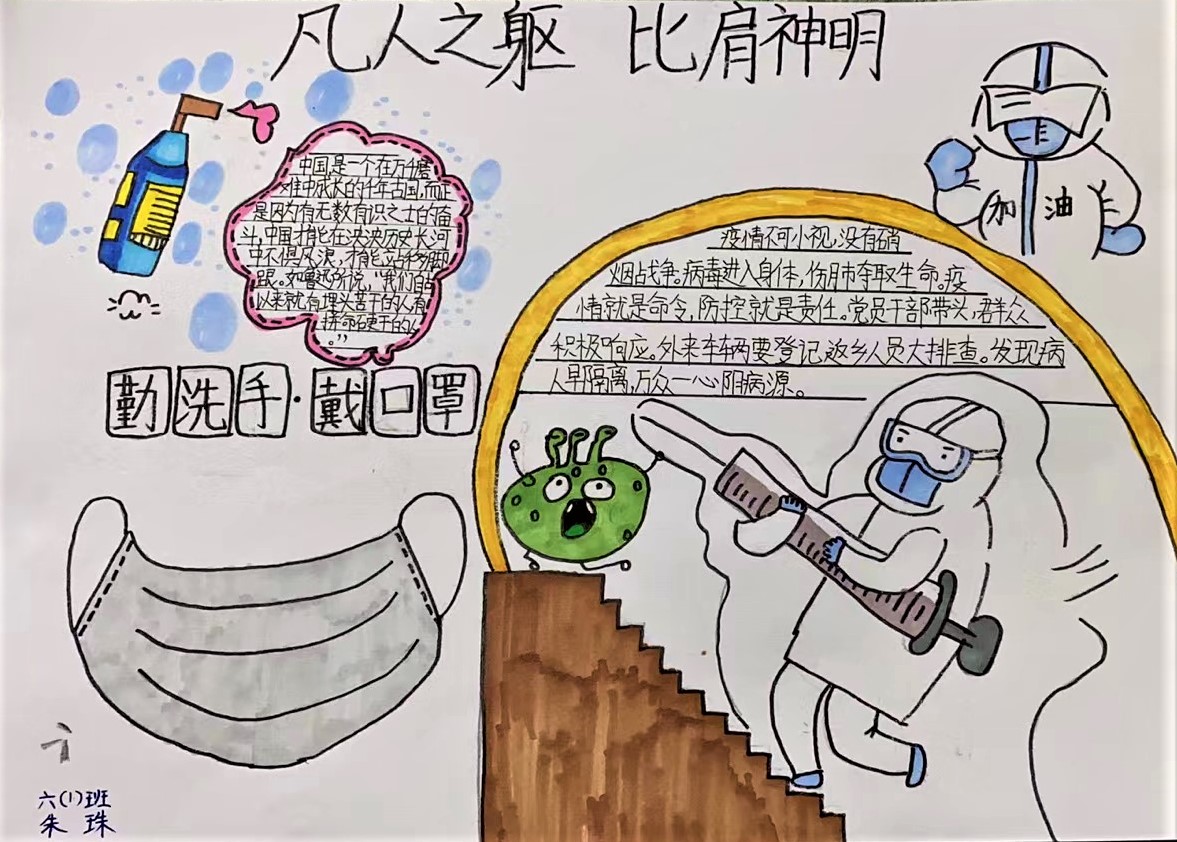 凡人之躯 比肩神明
中国是一个在万千磨
难中成长的千年古国,而正
是因为有无数有识之士的奋
斗,中国才能在泱泱历史长河
中不惧风浪,才能站稳脚
跟。如鲁迅所说,“我们自古
以来就有埋头苦干的人,有
拼命硬干的人
。”
加油
疫情不可小视,没有硝
烟占战争。病毒进入身体,伤肺夺取生命。疫
情就是命令,防控就是责任。党员干部带头,群众
积极响应。外来车辆要登记,返乡人员大排查。发现病
人早隔离,万众一心阻病源。
勤洗手·戴口罩
六(1)班
朱珠